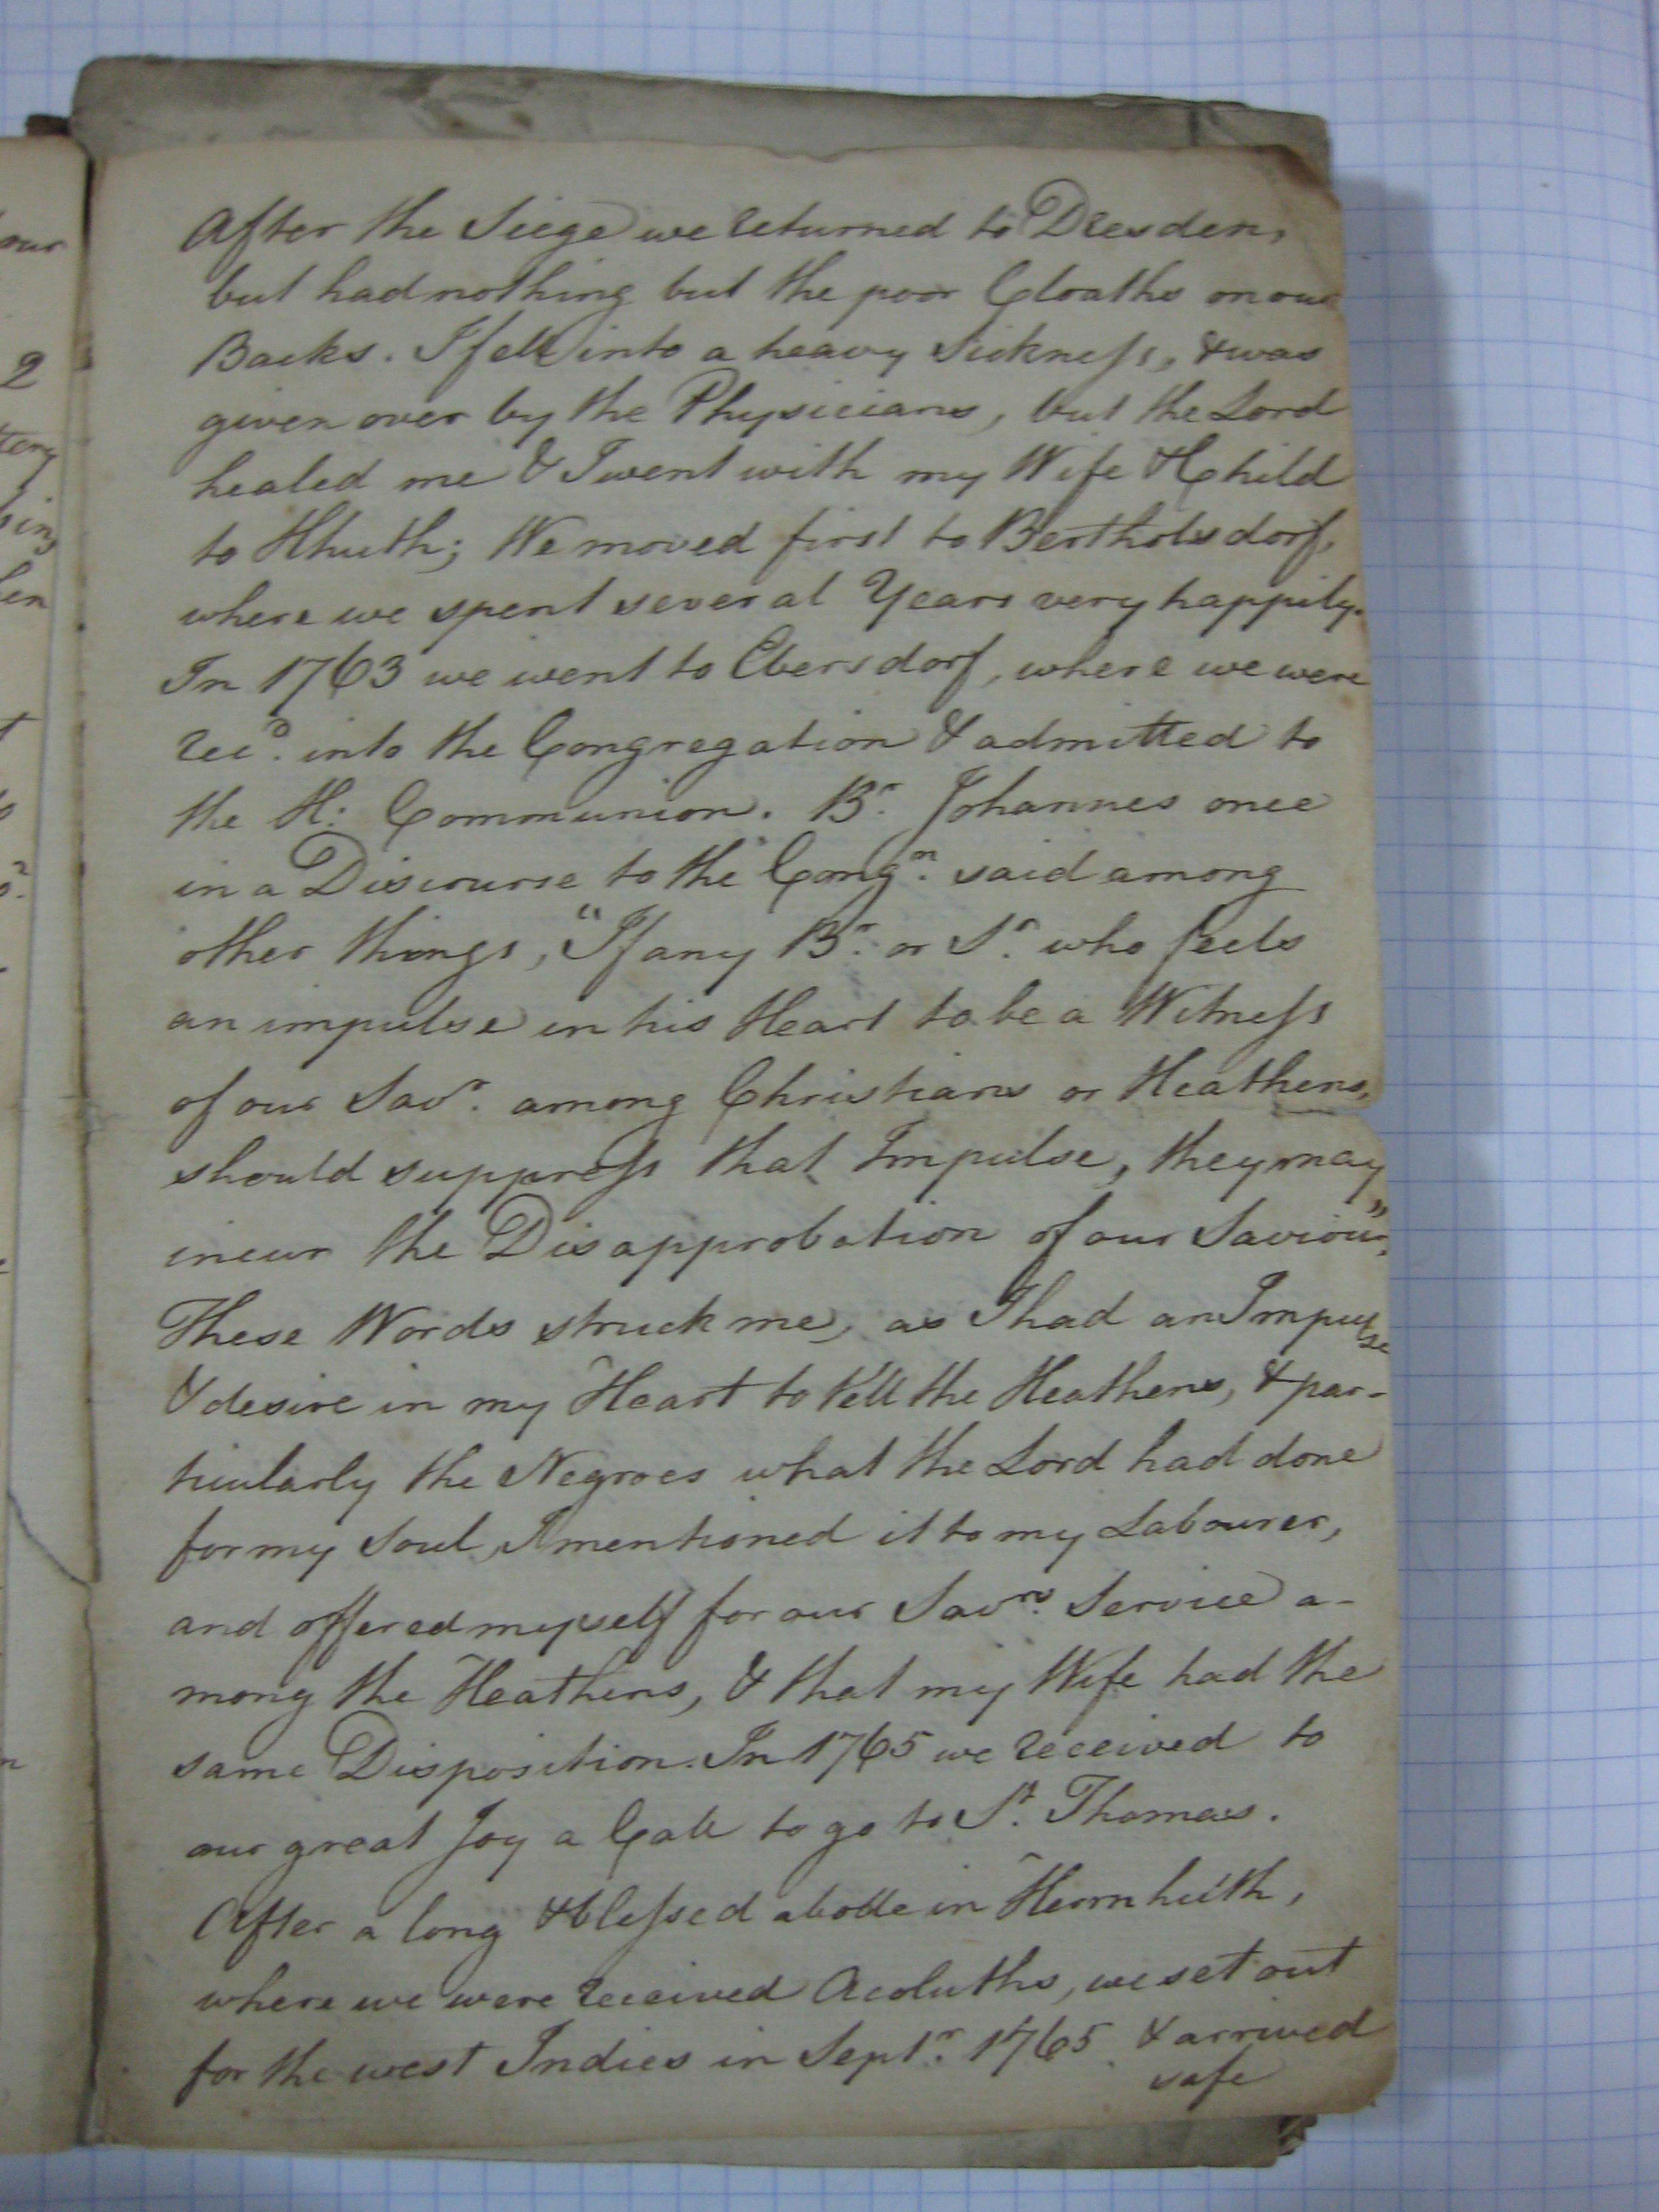 After the Siege we returned to Dresden,
but had nothing but the poor Cloaths on our
Backs. I fell into a heavy Sickness, & was
given over by the Physicians, but the Lord
healed me & I went with my Wife & Child
to Hhuth; We moved first to Bertholsdorf,
where we spent several Years very happily.
In 1763 we went to Ebersdorf, where we were
recd. into the Congregation & admitted to
the H: Communion. Br. Johannes once
in a Discourse to the Congn. said among
other things, "If any Br. or Sr. who feels
an impulse in his Heart to be a Witness
of our Savr. among Christians or Heathens,
should suppress that Impulse, they may
incur the Disapprobation of our Saviour."
These Words struck me, as I had an Impulse
& desire in my Heart to tell the Heathens, & par-
ticularly the Negroes what the Lord had done
for my Soul, I mentioned it to my Labourer,
and offered myself for our Savrs. Service a-
mong the Heathens, & that my Wife had the
same Disposition. In 1765 we received to
our great Joy a Call to go to St. Thomas.
After a long & blessed abode in Herrnhuth,
where we were received Acoluths, we set out
for the west Indies in Septr. 1765 & arrived
safe